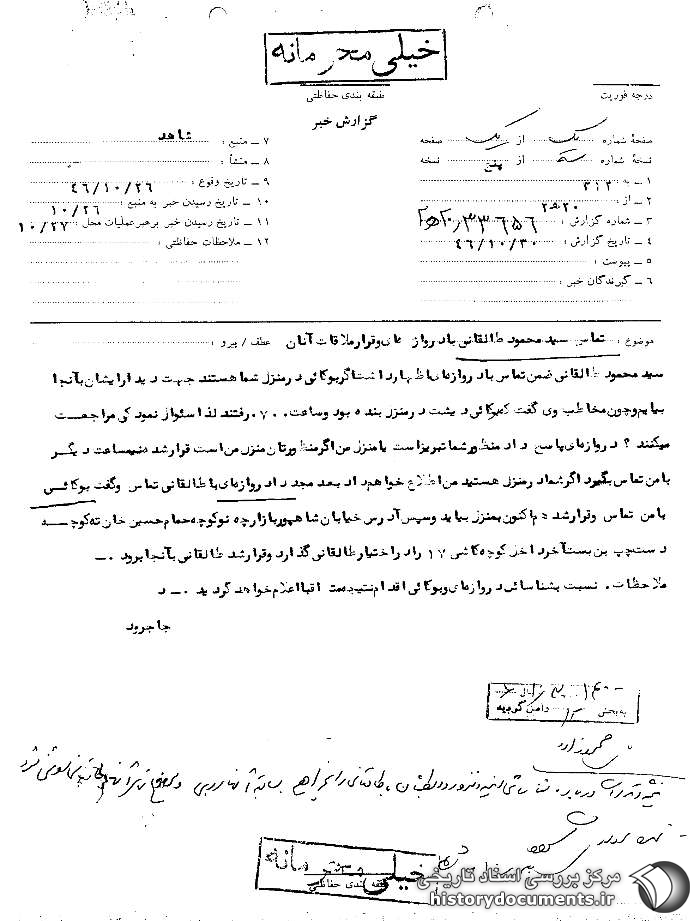 خیلی محرمانه
طبقه بندی حفاظتی
درجه فوریت
گزارش خبر
صفحهٔ شماره یک از یک صفحه
نسخهٔ شماره سه از پنج نسخه
۱ – به ۳۱۲
۲ – از ۲۰ ه‍ ۲
۳ – شماره گزارش : ۳۳۶۵۶ / ۲۰ ه‍ ۲
۴ – تاریخ گزارش : ۴۶/۱۰/۳۰
۵ – پیوست :
۶ – گیرندگان خبر :
۷ – منبع : شاهد
۸ – منشأ :
۹ – تاریخ وقوع : ۴۶/۱۰/۲۶
۱۰ – تاریخ رسیدن خبر به منبع : ۱۰/۲۶
۱۱ – تاریخ رسیدن خبر برهبر عملیات محل ۱۰/۲۷
۱۲ – ملاحظات حفاظتی :
موضوع : تماس سید محمود طالقانی با دروازه‌ای و قرار ملاقات آنان عطف / پیرو :
سید محمود طالقانی ضمن تماس با دروازه‌ای اظهار داشت اگر بوکائی در منزل شما هستند جهت دیدار ایشان بآنجا
بیایم و چون مخاطب وی گفت که بوکائی دیشب در منزل بنده بود و ساعت ۰۷۰۰ رفتند لذا سئوال نمود کی مراجعت
میکنند ؟ دروازه‌ای پاسخ داد منظور شما تبریز است یا منزل من اگر منظورتان منزل من است قرار شد نیمساعت دیگر
با من تماس بگیرد اگر شما در منزل هستید من اطلاع خواهم داد بعد مجدداً دروازه‌ای با طالقانی تماس و گفت بوکائی
با من تماس و قرار شد هم‌اکنون بمنزل بیاید و سپس آدرس خیابان شاهپور بازارچه نو کوچه حمام حسین خان ته کوچه
دست چپ بن بست آخر داخل کوچه کاشی ۱۷ را در اختیار طالقانی گذارد و قرار شد طالقانی بآنجا برود .–
ملاحظات . نسبت بشناسائی دروازه‌ای و بوکائی اقدام نتیجه متعاقباً اعلام خواهد گردید .– د
جاجرود
به بخش ۳۱۲
خیلی محرمانه
طبقه بندی حفاظتی
مرکز بررسی اسناد تاریخی
historydocuments.ir